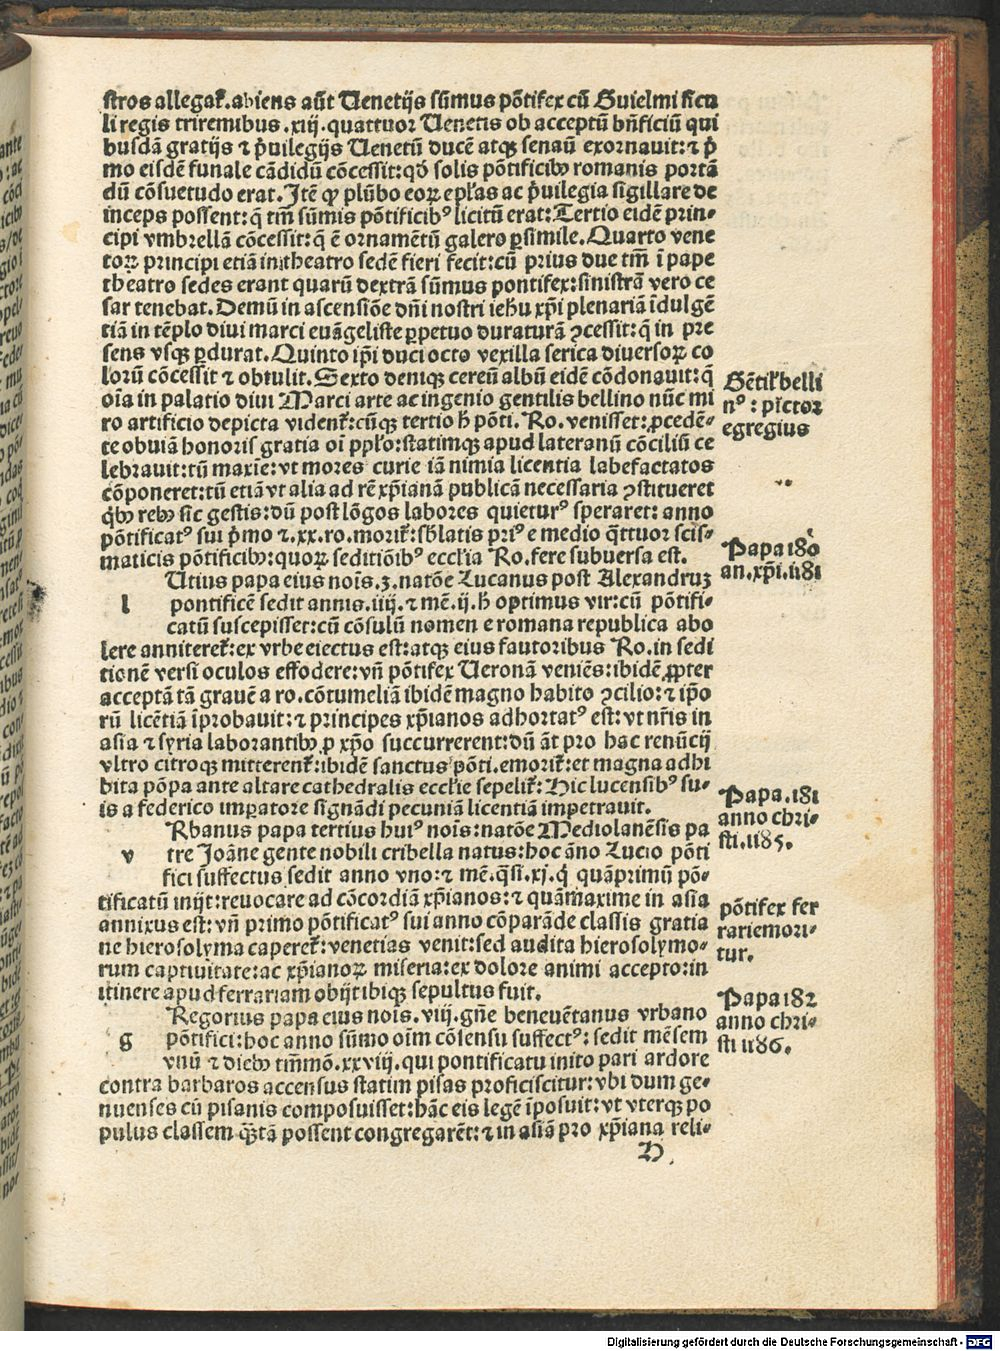 stros allegat̃.abiens aũt Uenetijs sũmus põtifex cũ Guielmi sicu
li regis triremibus.xiij.quattuor Uenetis ob acceptũ bñficiũ qui
busdã gratijs ⁊ p̃uilegijs Uenetũ ducẽ atqꝫ senaũ exornauit:⁊ p̃
mo eisdẽ funale cãdidũ cõcessit:qd̃ solis põtificibꝰ romanis portã
dũ cõsuetudo erat.Itẽ ꝙ plũbo eoꝝ ep̃las ac p̃uilegia sigillare de
inceps possent:q̃ tm̃ sũmis põtificibꝰ licitũ erat:Tertio eidẽ prin-
cipi vmbrellã cõcessit:q̃ ẽ ornamẽtũ galero ꝑsimile.Quarto vene
toꝝ principi etiã in theatro sedẽ fieri fecit:cũ prius due tm̃ ĩ pape
theatro sedes erant quarũ dextrã sũmus pontifex:sinistrã vero ce
sar tenebat.Demũ in ascensiõe dñi nostri iehu xp̃i plenariã ĩdulgẽ
tiã in tẽplo diui marci euãgeliste ꝑpetuo duraturã ꝯcessit:q̃ in pre
sens vsqꝫ ꝑdurat.Quinto ip̃i duci octo vexilla serica diuersoꝝ co
lorũ cõcessit ⁊ obtulit.Sexto deniqꝫ cereũ albũ eidẽ cõdonauit:q̃
oĩa in palatio diui Marci arte ac ingenio gentilis bellino nũc mi
ro artificio depicta vident̃:cũqꝫ tertio h̃ põti.Ro.venisset:ꝓcedẽ-
te obuiã honoris gratia oĩ pp̃lo:statimqꝫ apud lateranũ cõciliũ ce
lebrauit:tũ maxie:vt mores curie iã nimia licentia labefactatos
cõponeret:tũ etiã vt alia ad rẽ xp̃ianã publicã necessaria ꝯstitueret
q̃bꝰ rebꝰ sic gestis:dũ post lõgos labores quieturꝰ speraret:anno
põtificatꝰ sui p̃mo ⁊.xx.ro.morit̃:sb̃latis priꝰ e medio q̃ttuor scis-
maticis põtificibꝰ:quoꝝ seditiõibꝰ eccl̃ia Ro.fere subuersa est.
Utius papa eius noĩs.3.natõe Lucanus post Alexandruꝫ
l pontificẽ sedit annis.iiij.⁊ mẽ.ij.h̃ optimus vir:cũ põtifi-
catũ suscepisset:cũ cõsulũ nomen e romana republica abo
lere anniteret̃:ex vrbe eiectus est:atqꝫ eius fautoribus Ro.in sedi
tionẽ versi oculos effodere:vñ põtifex Ueronã veniẽs:ibidẽ ꝓpter
acceptã tã grauẽ a ro.cõtumeliã ibidẽ magno habito ꝯcilio:⁊ ip̃o
rũ licẽtiã ĩprobauit:⁊ principes xp̃ianos adhortatꝰ est:vt nr̃is in
asia ⁊ syria laborantibꝰ ꝑ xp̃o succurrerent:dũ ãt pro hac renũcij
vltro citroqꝫ mitterent̃:ibidẽ sanctus põti.emorit̃:et magna adhi
bita põpa ante altare cathedralis eccl̃ie sepelit̃:Hic lucensibꝰ su-
is a federico imꝑatore signãdi pecuniã licentiã impetrauit.
Rbanus papa tertius huiꝰ noĩs:natõe Mediolanẽsis pa
v tre Joãne gente nobili cribella natus:hoc ãno Lucio põti
fici suffectus sedit anno vno:⁊ mẽ.q̃si.xj.q̃ quãprimũ põ-
tificatũ inijt:reuocare ad cõcordiã xp̃ianos:⁊ quãmaxime in asia
annixus est:vñ primo põtificatꝰ sui anno cõparãde classis gratia
ne hierosolyma caperet̃:venetias venit:sed audita hierosolymo-
rum captiuitate:ac xp̃ianoꝝ miseria:ex dolore animi accepto:in
itinere apud ferrariam obijt ibiqꝫ sepultus fuit.
Regorius papa eius noĩs.viij.gñe beneuẽtanus vrbano
g põtifici:hoc anno sũmo oĩm cõsensu suffectꝰ:sedit mẽsem
vnũ ⁊ diebꝰ tm̃mõ.xxviij.qui pontificatu inito pari ardore
contra barbaros accensus statim pisas proficiscitur:vbi dum ge-
nuenses cũ pisanis composuisset:hãc eis legẽ ĩposuit:vt vterqꝫ po
pulus classem q̃ꝫtã possent congregarẽt:⁊ in asiã pro xp̃iana reli-
H
Gẽtil̃ belli
nꝰ:pictor
egregius
Papa 180
an.xp̃i.1181
Papa.181
anno chri-
sti.1185.
põtifex fer
rarie mori-
tur.
Papa 182
anno chri-
sti 1186.
Digitalisierung gefördert durch die Deutsche Forschungsgemeinschaft - DFG